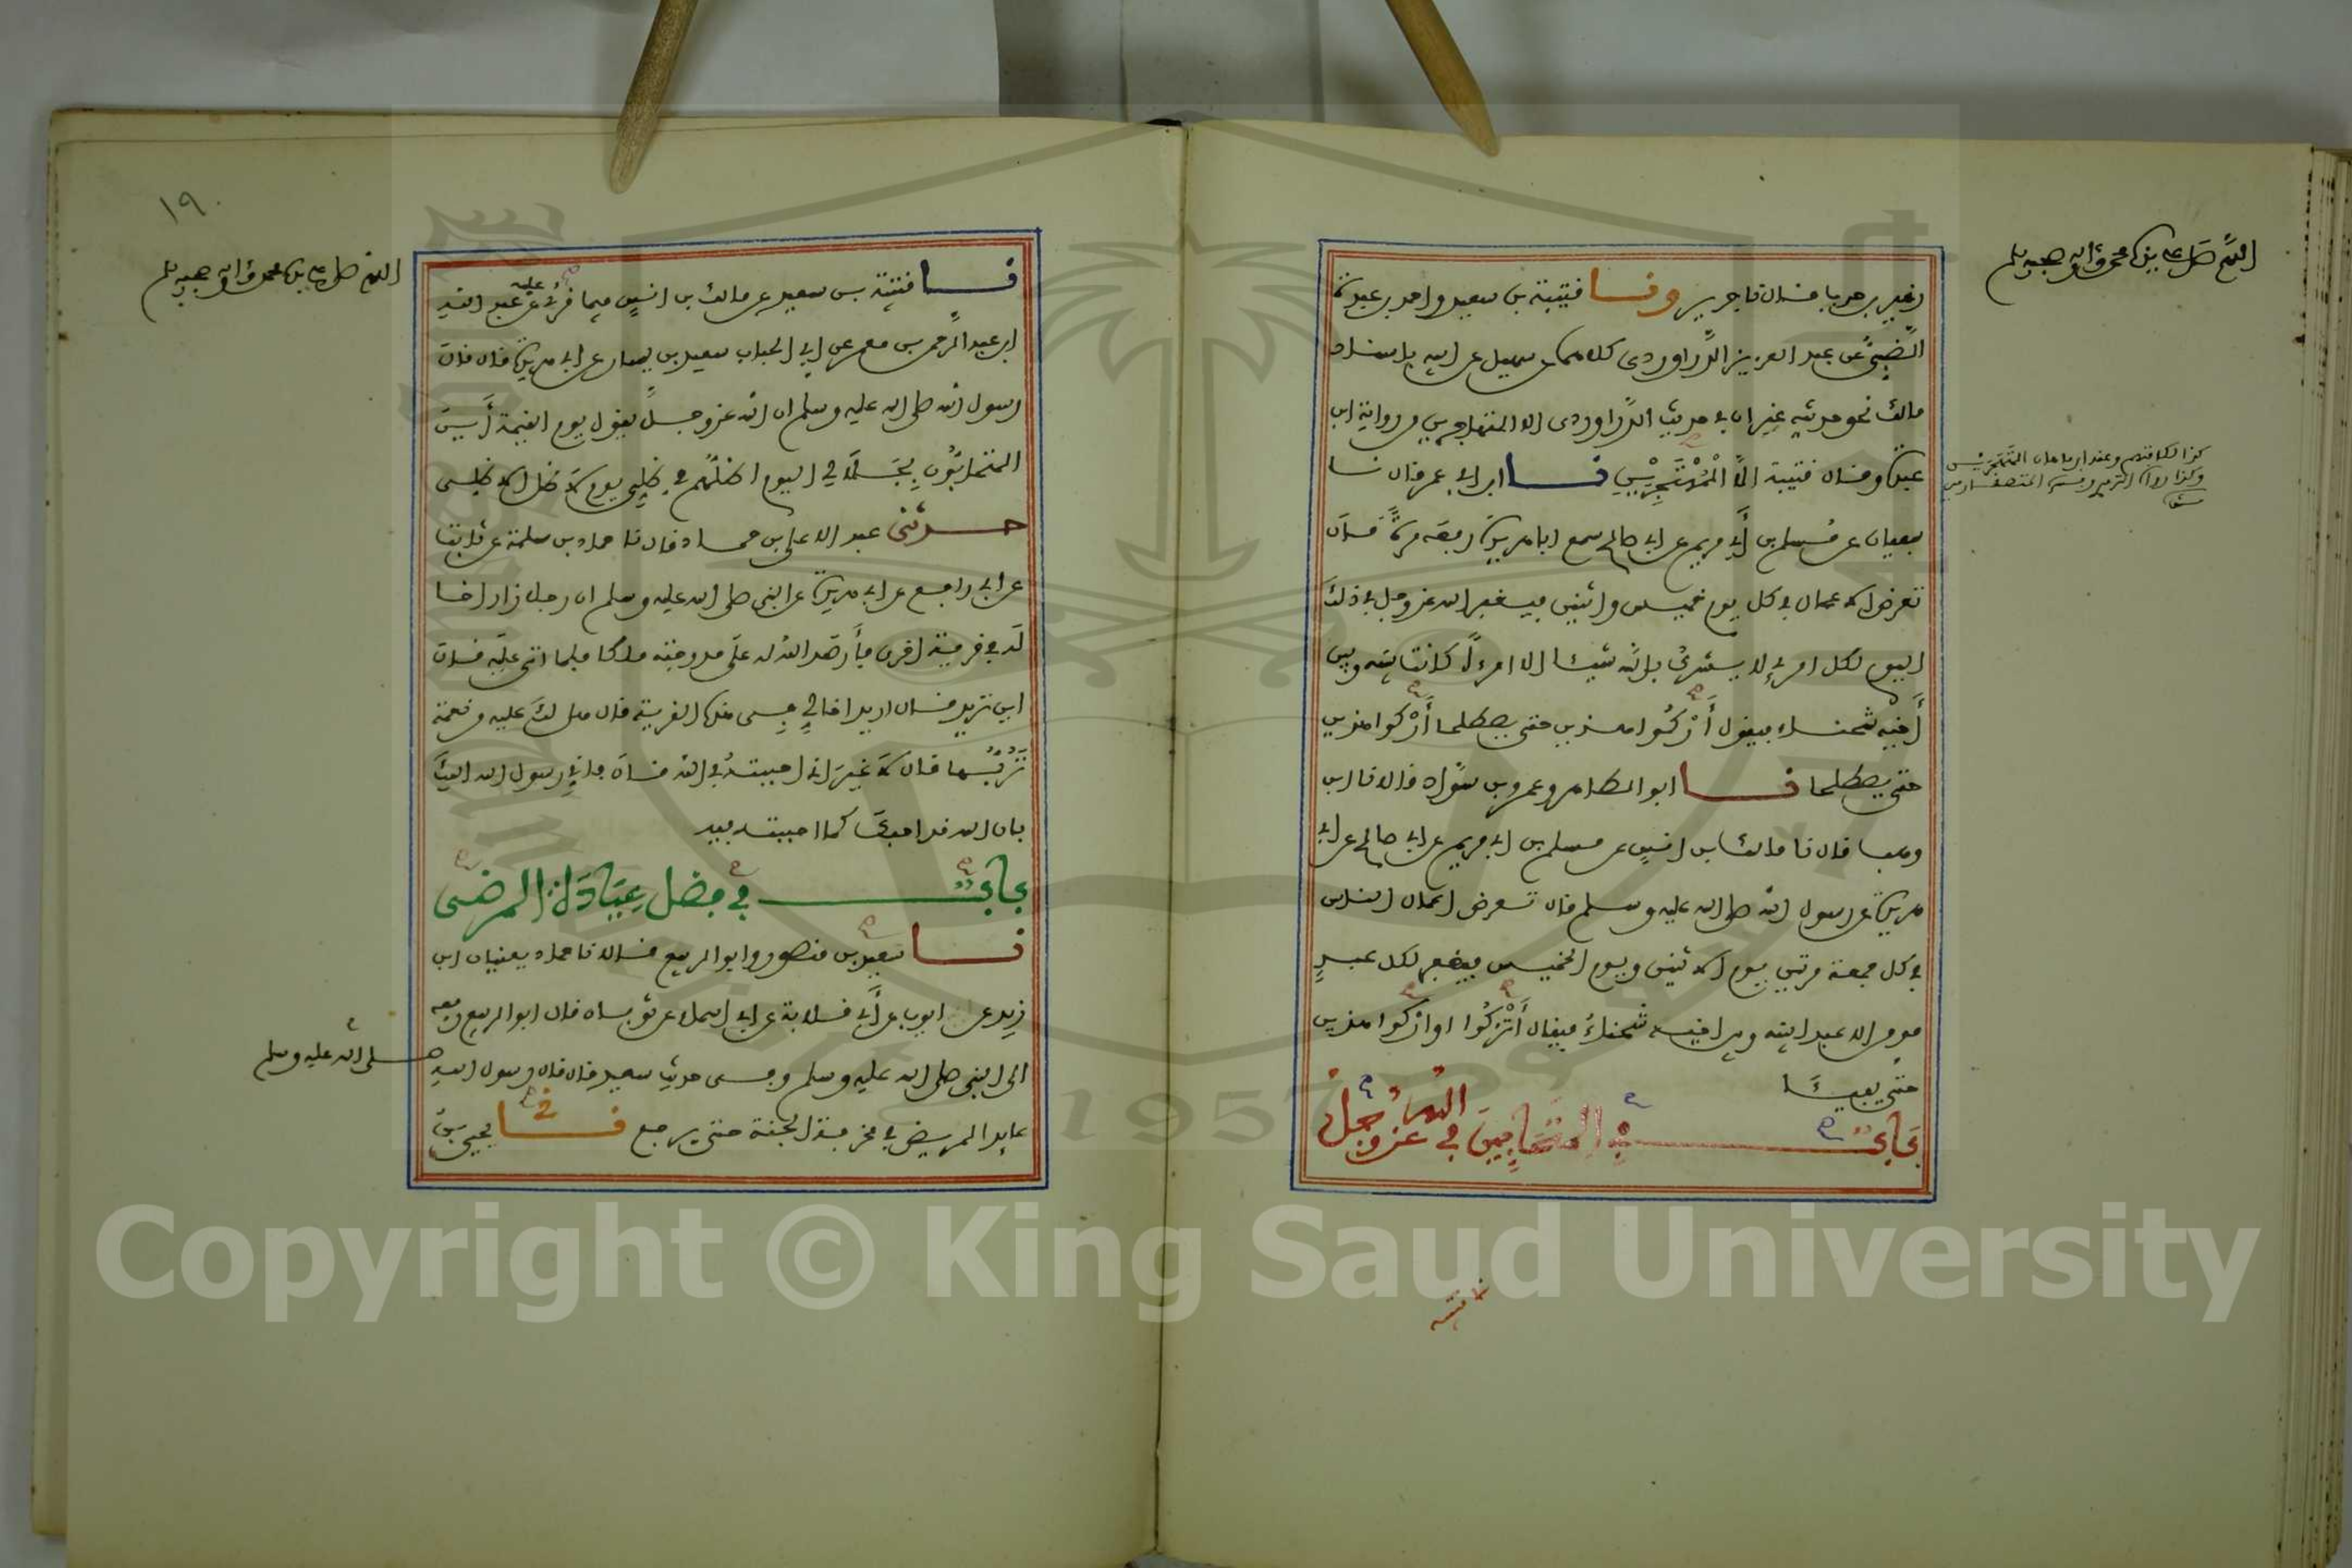 اللهم صل على نبينا محمد وآله وصحبه وسلم
زهير بن حرب قال نا جرير ونا قتيبة بن سعيد واحمد بن عبدة
الضَّبِّيُّ عن عبد العزيز الدَّراوردي كلاهما عن سهيل عن ابيه باسناد
مالك نحو حديثه غير ان في حديث الدَّراوردي الا المتهاجرين من رواية ابن
عبدة وقال قتيبة الَّا الْمُهْتَجِرَيْنِ نا ابن ابي عمر قال نا
سفيان عن مُسلم بن أَبي مريم عن ابي صالح سمع ابا هريرة رفعه مرةً قال
تعرض الاعمال في كل يوم خميس واثنين فيغفر الله عز وجل في ذلك
اليوم لكل امرئ لا يشركُ بالله شيئا الا امرءًا كانت بينه وبين
أَخِيهِ شحناء فيقول أَرْكُوا هذين حتى يصطلحا أَرْكوا هذين
حتى يصطلحا نا ابو الطاهر وعمرو بن سَوَّاد قالا نا ابن
وهب قال نا مالك بن انس عن مسلم بن ابي مريم عن ابي صالح عن ابي
هريرة عن رسول الله صلى الله عليه وسلم قال تعرض اعمال الناس
في كل جمعة مرتين يوم الاثنين ويوم الخميس فيغفر لكل عبدٍ
مومن الا عبدا بينه وبين اخيه شحناءُ فيقال أُتْرُكُوا او اركوا هذين
حتى يفيئَا
بَابٌ فِي الْمُتَحَابِّينَ في اللهِ عز وجل
نا قتيبة بن سعيد عن مالك بن انسٍ فيما قُرئ عليه عن عبد الله
ابن عبد الرَّحمن بن معمر عن ابي الحباب سعيد بن يسار عن ابي هريرة قال قال
رسول الله صلى الله عليه وسلم ان الله عز وجلَّ يقول يوم القيمة أَينَ
المتحابُّونَ بِجَلَالِي اليوم اظلُّهم في ظِلِّي يوم لَا ظل الا ظلي
حدثني عبد الاعلى بن حماد قال نا حماد بن سلمة عن ثابت
عن ابي رافع عن ابي هريرة عن النبي صلى الله عليه وسلم ان رجلا زار اخا
له في قرية اخرى فأَرصَد الله له على مدرجته ملكا فلما اتى عليه قال
اين تريد قال اريد اخا لي في هذه القرية قال هل لك عليه من نعمة
تَرُبُّها قال لَا غيرَ اني احببتُهُ في الله قال فاني رسول الله اليك
بان الله قد احبك كما احببته فيه
بَابٌ في فضل عِيَادَة المرضى
نا سعيد بن منصور وابو الربيع قالا نا حماد يعنيان ابن
زيد عن ايوب عن أَبي قلابة عن ابي اسماء عن ثوبان قال ابو الربيع رفعه
الى النبي صلى الله عليه وسلم وفي حديث سعيد قال قال رسول الله
صلى الله عليه وسلم
عايد المريض في مخرفة الجنة حتى يرجع نا يحيى بن
١٩٠
Copyright © King Saud University
1957